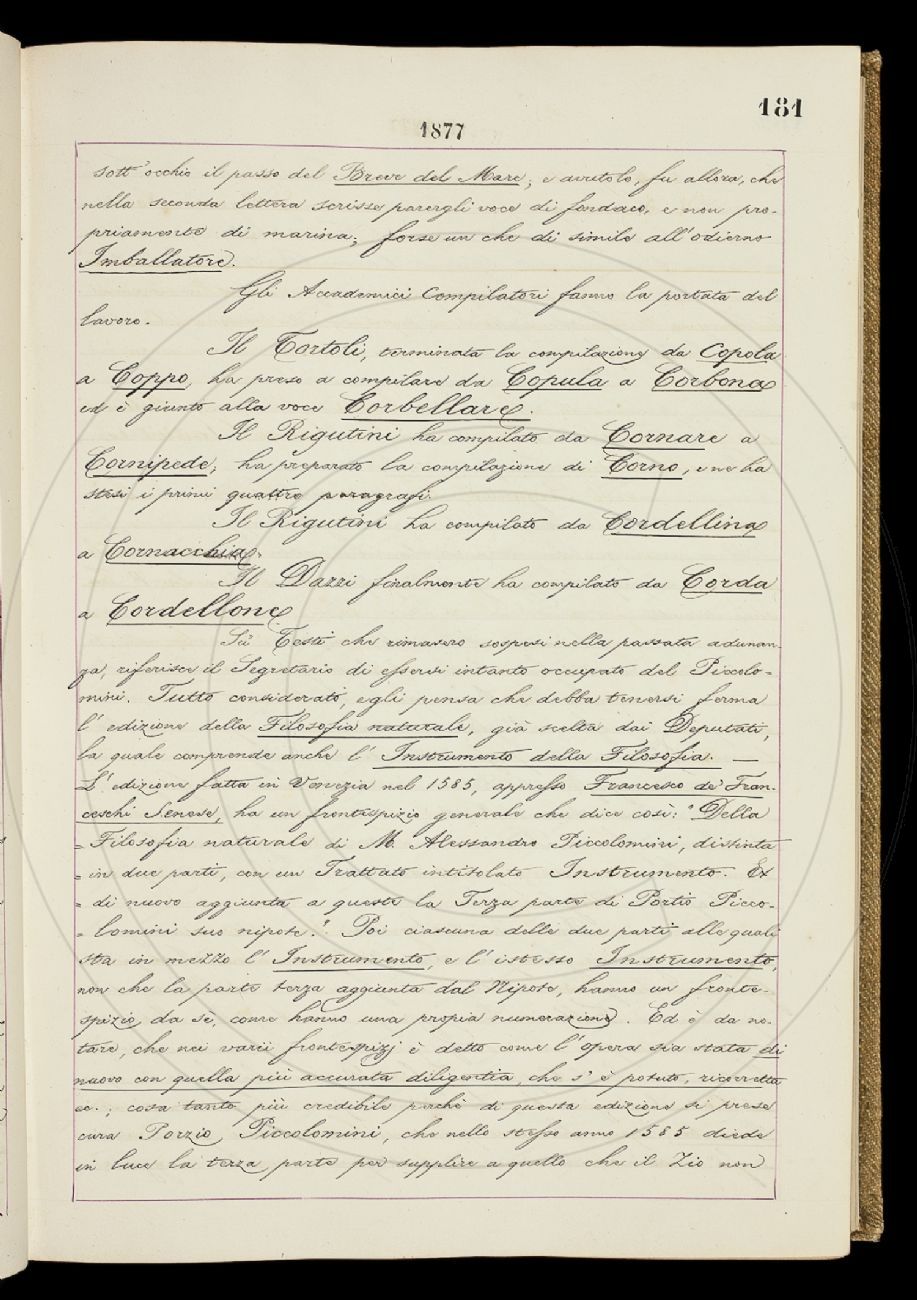 181
1877
sott'occhio il passo del Breve del Mare; e avutolo, fu allora, che
nella seconda lettera scrisse parergli voce di fondaco, e non pro-
priamente di marina; forse un che di simile all'odierno
Imballatore.
Gli Accademici Compilatori fanno la portata del
lavoro.
Il Tortoli, terminata la compilazione da Copola
a Coppo, ha preso a compilare da Copula a Corbona
ed è giunto alla voce Corbellare.
Il Rigutini ha compilato da Cornare a
Cornipede; ha preparato la compilazione di Corno, e ne ha
stesi i primi quattro paragrafi.
Il Rigutini ha compilato da Cordellina
a Cornacchia.
Il Dazzi finalmente ha compilato da Corda
a Cordellone.
Sù Testi che rimasero sospesi nella passata adunan-
za, riferisce il Segretario di essersi intanto occupato del Piccolo-
mini. Tutto considerato, egli pensa che debba tenersi ferma
l'edizione della Filosofia naturale, già scelta dai Deputati,
la quale comprende anche l'Instrumento della Filosofia. —
L'edizione fatta in Venezia nel 1585, appresso Francesco de' Fran-
ceschi Senese, ha un frontespizio generale che dice così: "Della
= Filosofia naturale di M. Alessandro Piccolomini, distinta
= in due parti, con un Trattato intitolato Instrumento. Et
= di nuovo aggiunta a queste la Terza parte di Portio Picco-
= lomini suo nipote." Poi ciascuna delle due parti alle quali
sta in mezzo l'Instrumento, e l'istesso Instrumento,
non che la parte terza aggiunta dal Nipote, hanno un fronte-
spizio da se, come hanno una propia numerazione. Ed è da no-
tare, che nei varii frontespizj è detto come l'opera sia stata di
nuovo con quella più accurata diligentia, che s'è potuto, ricorretta
ec.; cosa tanto più credibile perchè di questa edizione si prese
cura Porzio Piccolomini, che nello stesso anno 1585 diede
in luce la terza parte per supplire a quello che il Zio non